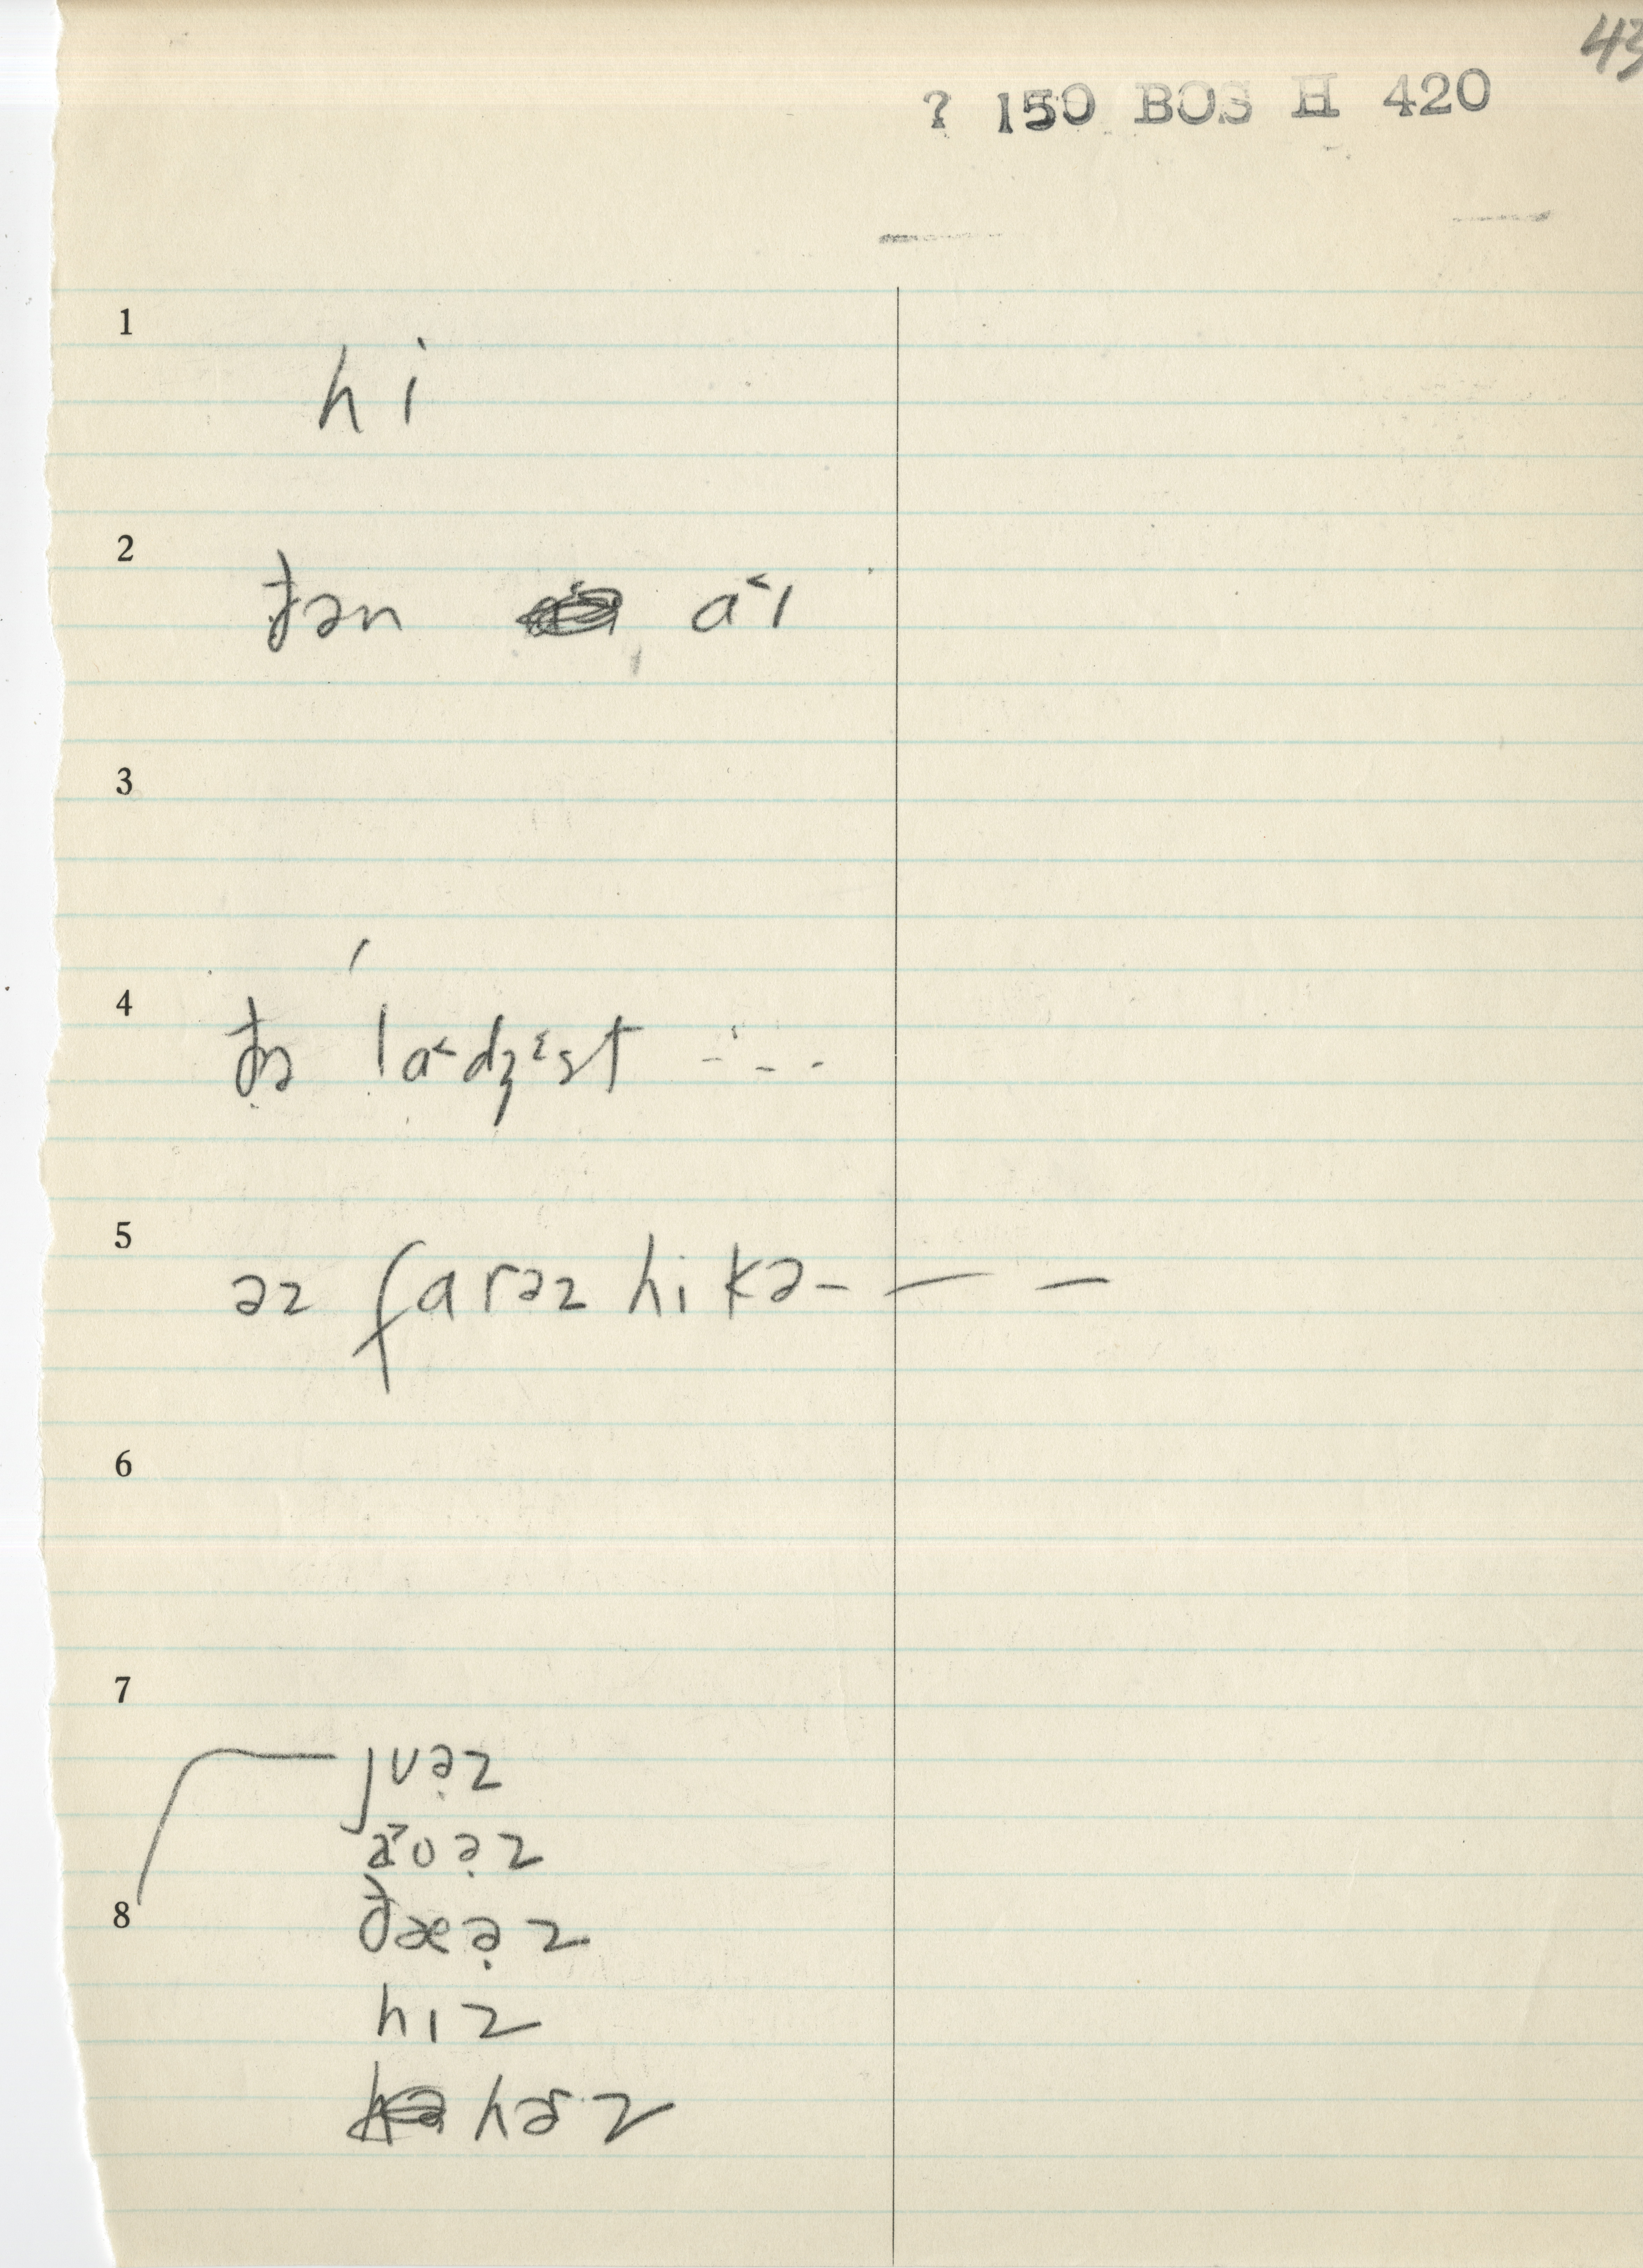 43
? 150 BOS H 420
1
hi
2
ðən a˂ɪ
3
4
ðə la˂dʒᵋst - - - -
5
əz farəz hi kə - — —
6
7
ȷʊə̣z
a˃ʊə̣z
8
ðæə̣z
hɪz
hɚz